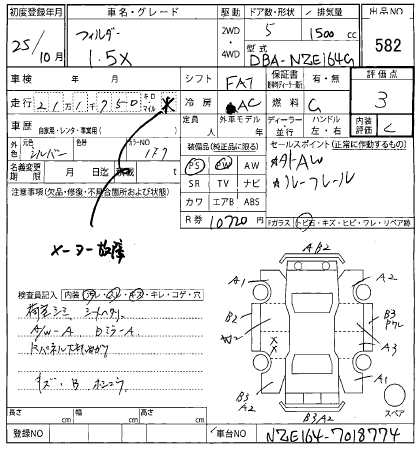 初度登録年月 車名・グレード 駆動 ドア数・形状 排気量 出品NO
25/10月 フィルダー 1.5X 2WD 4WD 5 1500 cc 582
型式 DBA-NZE164G
車検 年 月 シフト FAT 保証書 有・無 評価点
走行 21万1千750 キロ マイル ✗ 冷房 AC 燃料 G 3
車歴 自家用・レンタ・事業用( ) 定員 人 外車モデル 年 ディーラー 並行 ハンドル 左・右 内装評価 C
外色 元色 シルバー 色替 カラーNO 1F7 装備品(純正品に限る) セールスポイント(正常に動作するもの)
名義変更期限 月 日迄 PS PW AW ☆社外AW
注意事項(欠品・修復・不具合箇所および状態) SR TV ナビ ☆ルーフレール
カワ エアB ABS
R券 10720 円 Fガラス トビ石・キズ・ヒビ・ワレ・リペア跡
メーター故障
検査員記入 内装 コゲ・穴
荷室シミ シートヘタリ
A/W-A DミラーA
キズ・B
A B2
A1 A2
B2 B3
A3
B3 A2 A1
B3 A2
スペア
長さ cm 幅 cm 高さ cm
登録NO 車台NO NZE164-7018774